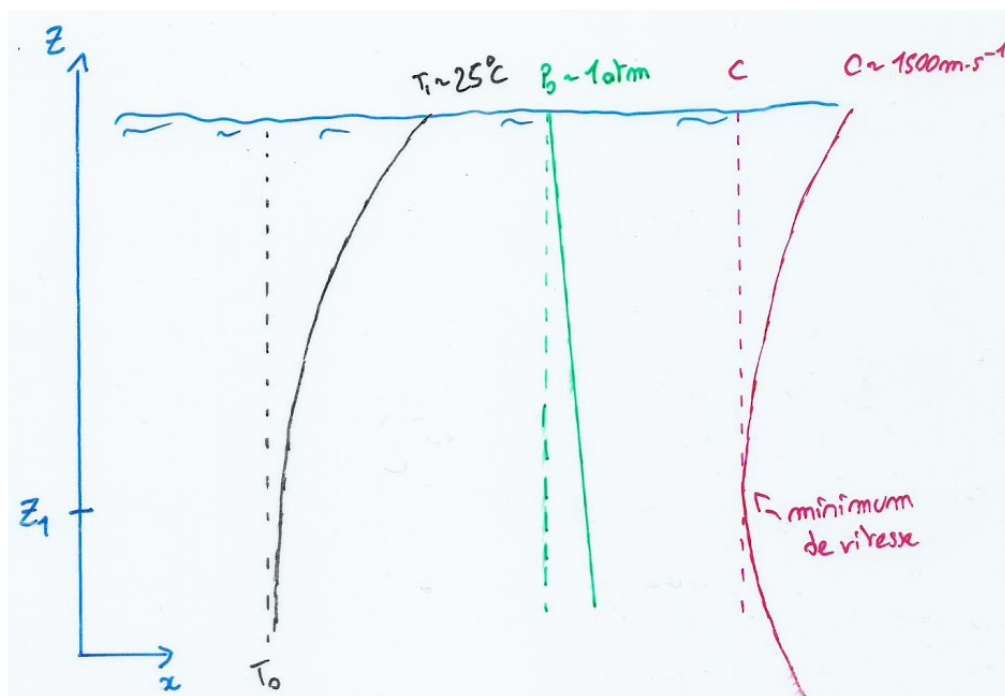 Z
T₁~25°C
P₀~1atm
C
C~1500m.s⁻¹
Z₁
minimum
de vitesse
x
T₀